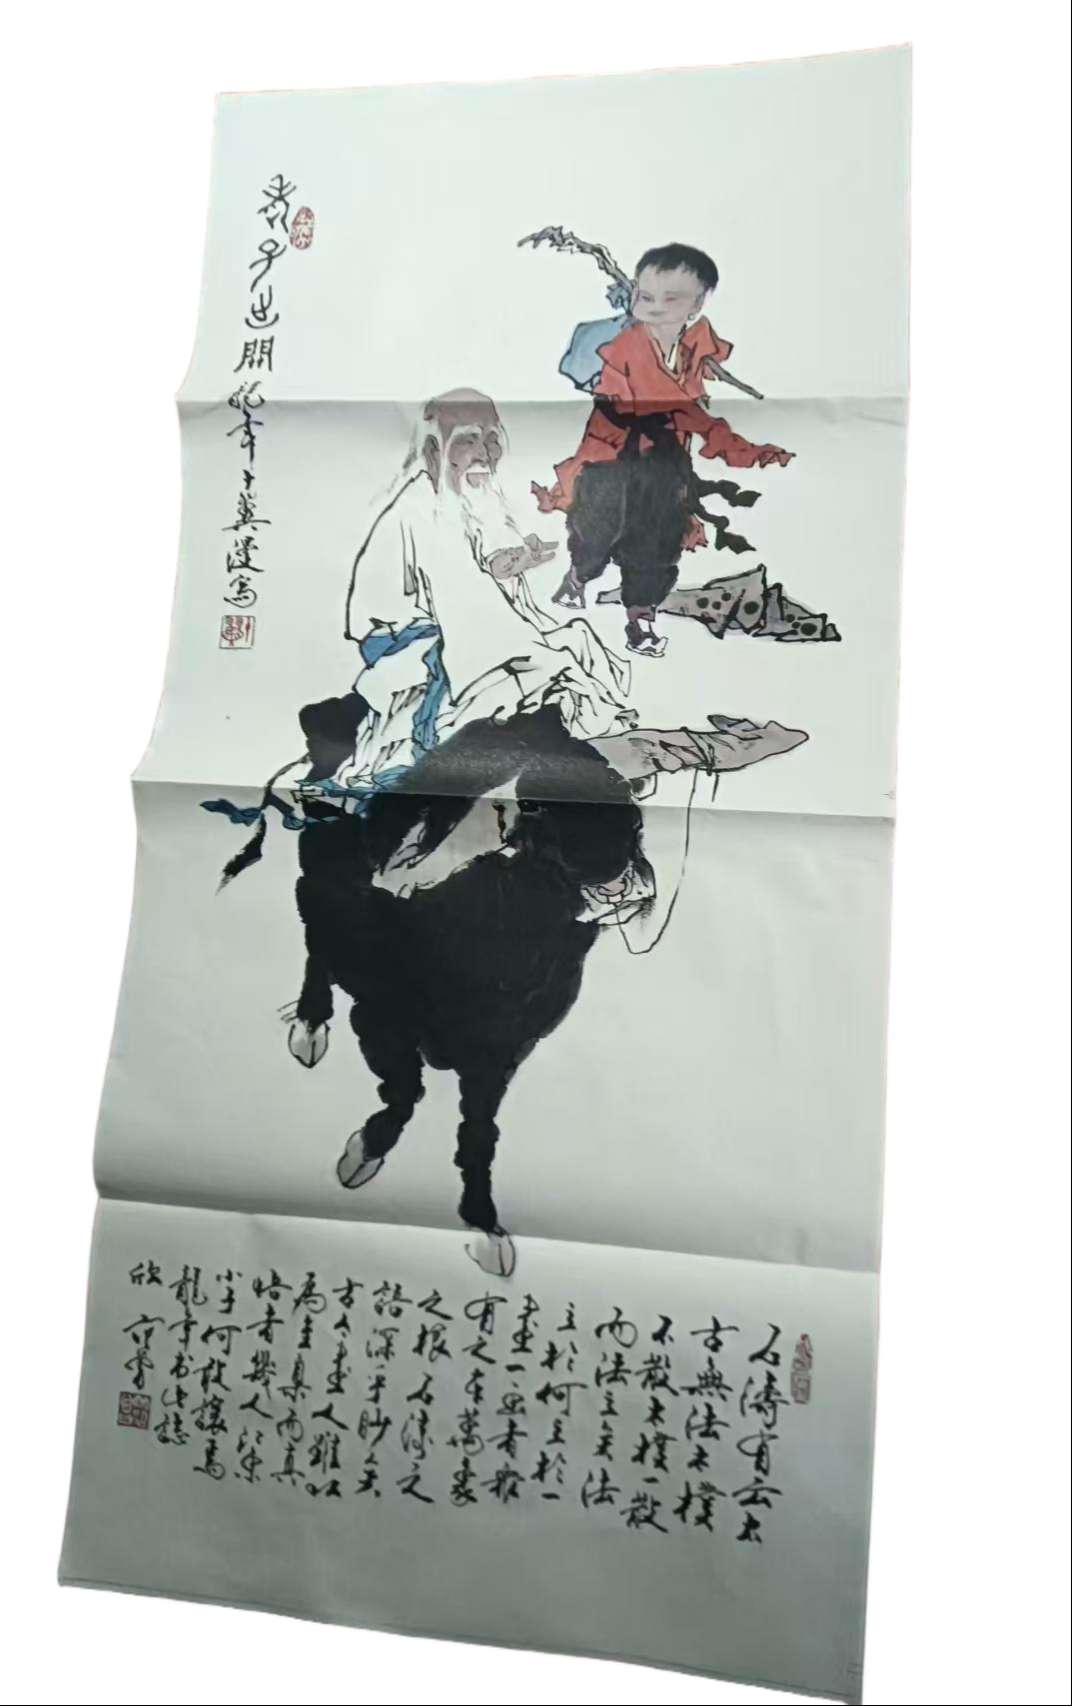 老子出關 龍年十翼漫寫
石濤有云太
古無法太樸
不散太樸一散
而法立矣法
立於何立於一
畫一畫者衆
有之本萬象
之根石濤之
語深乎妙矣
古今畫人雖以
為圭臬而真
悟者幾人江東
小子何敢讓焉
龍年書此誌
欣 范曾